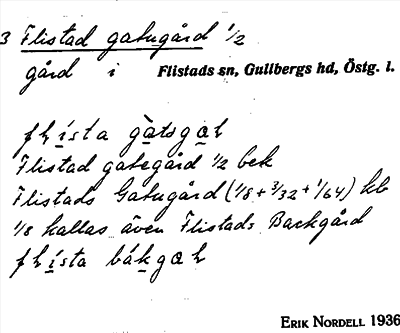 3 Flistad gatugård 1/2
gård i Flistads sn, Gullbergs hd, Östg. l.
flista gatsgaɫ
Flistad gategård 1/2 bek
Flistads Gatugård (1/8 + 3/32 + 1/64) kb
1/8 kallas även Flistads Backgård
flista bákgaɫ
ERIK NORDELL 1936